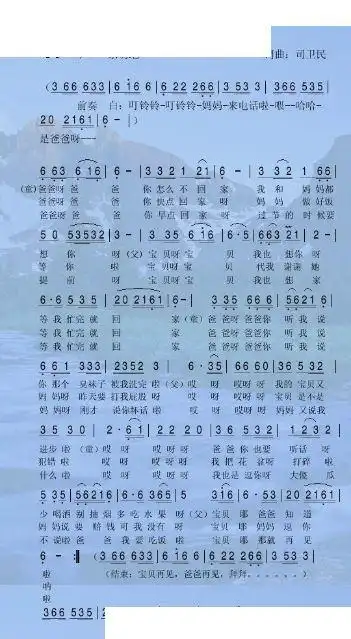 词曲：司卫民
(3 66 633 | 6 16 6 | 6 22 266 | 3 53 3 | 366 535 |
前奏 白：叮铃铃-叮铃铃-妈妈-来电话啦-喂--哈哈-
20 2161 | 6 - | )
是爸爸呀---
6 6 6 3 | 6 16 | 6 - | 3 3 2 1 | 21 | 6 - | 3 3 | 1 66 |
(童)爸爸呀 爸 爸 你 怎么 不 回 家 我 和 妈妈都
爸爸呀 爸 爸 你 快点 回 家 呀 妈妈 做 好饭
爸爸呀 爸 爸 你 早点 回 家 呀 过 节的 时 候要
5 0 53532 | 3 - | 3 5 6 16 | 6·5 | 663 21 | 2 - |
想 你 呀 (父)宝 贝呀 宝 贝 我也 想你 呀
等 你 啦 宝 贝呀 宝 贝 代我 谢谢 她
提 前 呀 宝 贝呀 宝 贝 我也 想 家
6·6 5 35 | 20 2161 | 6 - | 3 35 66 6 | 5621 6 |
等 我 忙 完 就 回 家 (童)爸 爸呀 爸爸你 听 我 说
等 我 忙 完 就 回 家 爸 爸呀 爸爸你 听 我 说
等 我 忙 完 就 回 家 爸 爸呀 爸爸你 听 我 说
6 6 1 333 | 2352 3 | 6·35 | 66 60 | 36 5 32 |
你 那个 臭袜子 被我 洗完 啦 (父)哎 呀 哎呀 呀 我的 宝贝 又
妈 妈呀 昨天要 打我 屁股 呀 哎 呀 哎呀 呀 宝贝 是不 是
妈 妈呀 刚才 说你 坏话 啦 哎 呀 哎呀 呀 妈妈 又说 我
35 30 | 2·61 | 22 20 | 36 532 | 1 23 2 |
进步 啦 (童)哎 呀 哎呀 呀 爸爸 你也要 听话 呀
犯错 啦 哎 呀 哎呀 呀 我把 花 盆呀 打碎 啦
什么 啦 哎 呀 哎呀 呀 我也是 逗你呀 大傻 瓜
5 35 | 56216 | 6·6 365 | 5 - | 3 16 | 6·5 | 3 20 | 2161 |
少 喝酒 别 抽烟 多 吃水 果 呀 (父)宝贝 耶 爸爸 知道
妈 妈说 要 赔钱 可 我没 有 呀 宝贝 耶 妈妈 逗你
不 说啦 爸 爸 我 要 吃饭 啦 宝贝 耶 那那就 再见
6 - :‖ (3 66 633 | 6 16 6 | 6 22 266 | 3 53 3 |
啦 (结束：宝贝再见，爸爸再见，拜拜。。。。。)
呐
啦
366 535 |